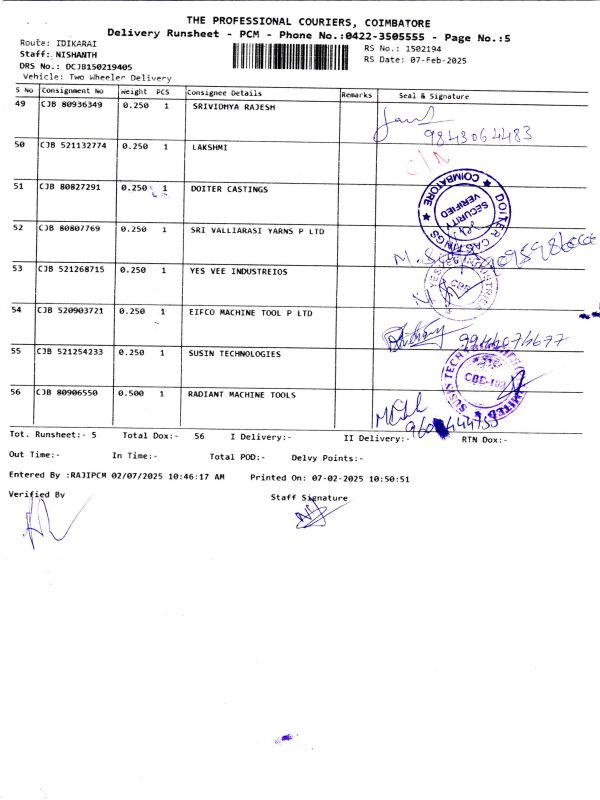 THE PROFESSIONAL COURIERS, COIMBATORE
Delivery Runsheet - PCM - Phone No.:0422-3505555 - Page No.:5
Route: IDIKARAI
RS No.: 1502194
Staff: NISHANTH
RS Date: 07-Feb-2025
DRS No.: DCJB150219405
Vehicle: Two Wheeler Delivery
S No Consignment No Weight PCS Consignee Details Remarks Seal & Signature
49 CJB 80936349 0.250 1 SRIVIDHYA RAJESH
9843064483
50 CJB 521132774 0.250 1 LAKSHMI
C/N
51 CJB 80827291 0.250 1 DOITER CASTINGS
DOITER CASTINGS
COIMBATORE
SECURITY
VERIFIED
52 CJB 80807769 0.250 1 SRI VALLIARASI YARNS P LTD
53 CJB 521268715 0.250 1 YES VEE INDUSTREIOS
CBE
54 CJB 520903721 0.250 1 EIFCO MACHINE TOOL P LTD
55 CJB 521254233 0.250 1 SUSIN TECHNOLOGIES
56 CJB 80906550 0.500 1 RADIANT MACHINE TOOLS
Tot. Runsheet:- 5 Total Dox:- 56 I Delivery:- II Delivery:- RTN Dox:-
Out Time:- In Time:- Total POD:- Delvy Points:-
Entered By :RAJIPCM 02/07/2025 10:46:17 AM Printed On: 07-02-2025 10:50:51
Verified By Staff Signature